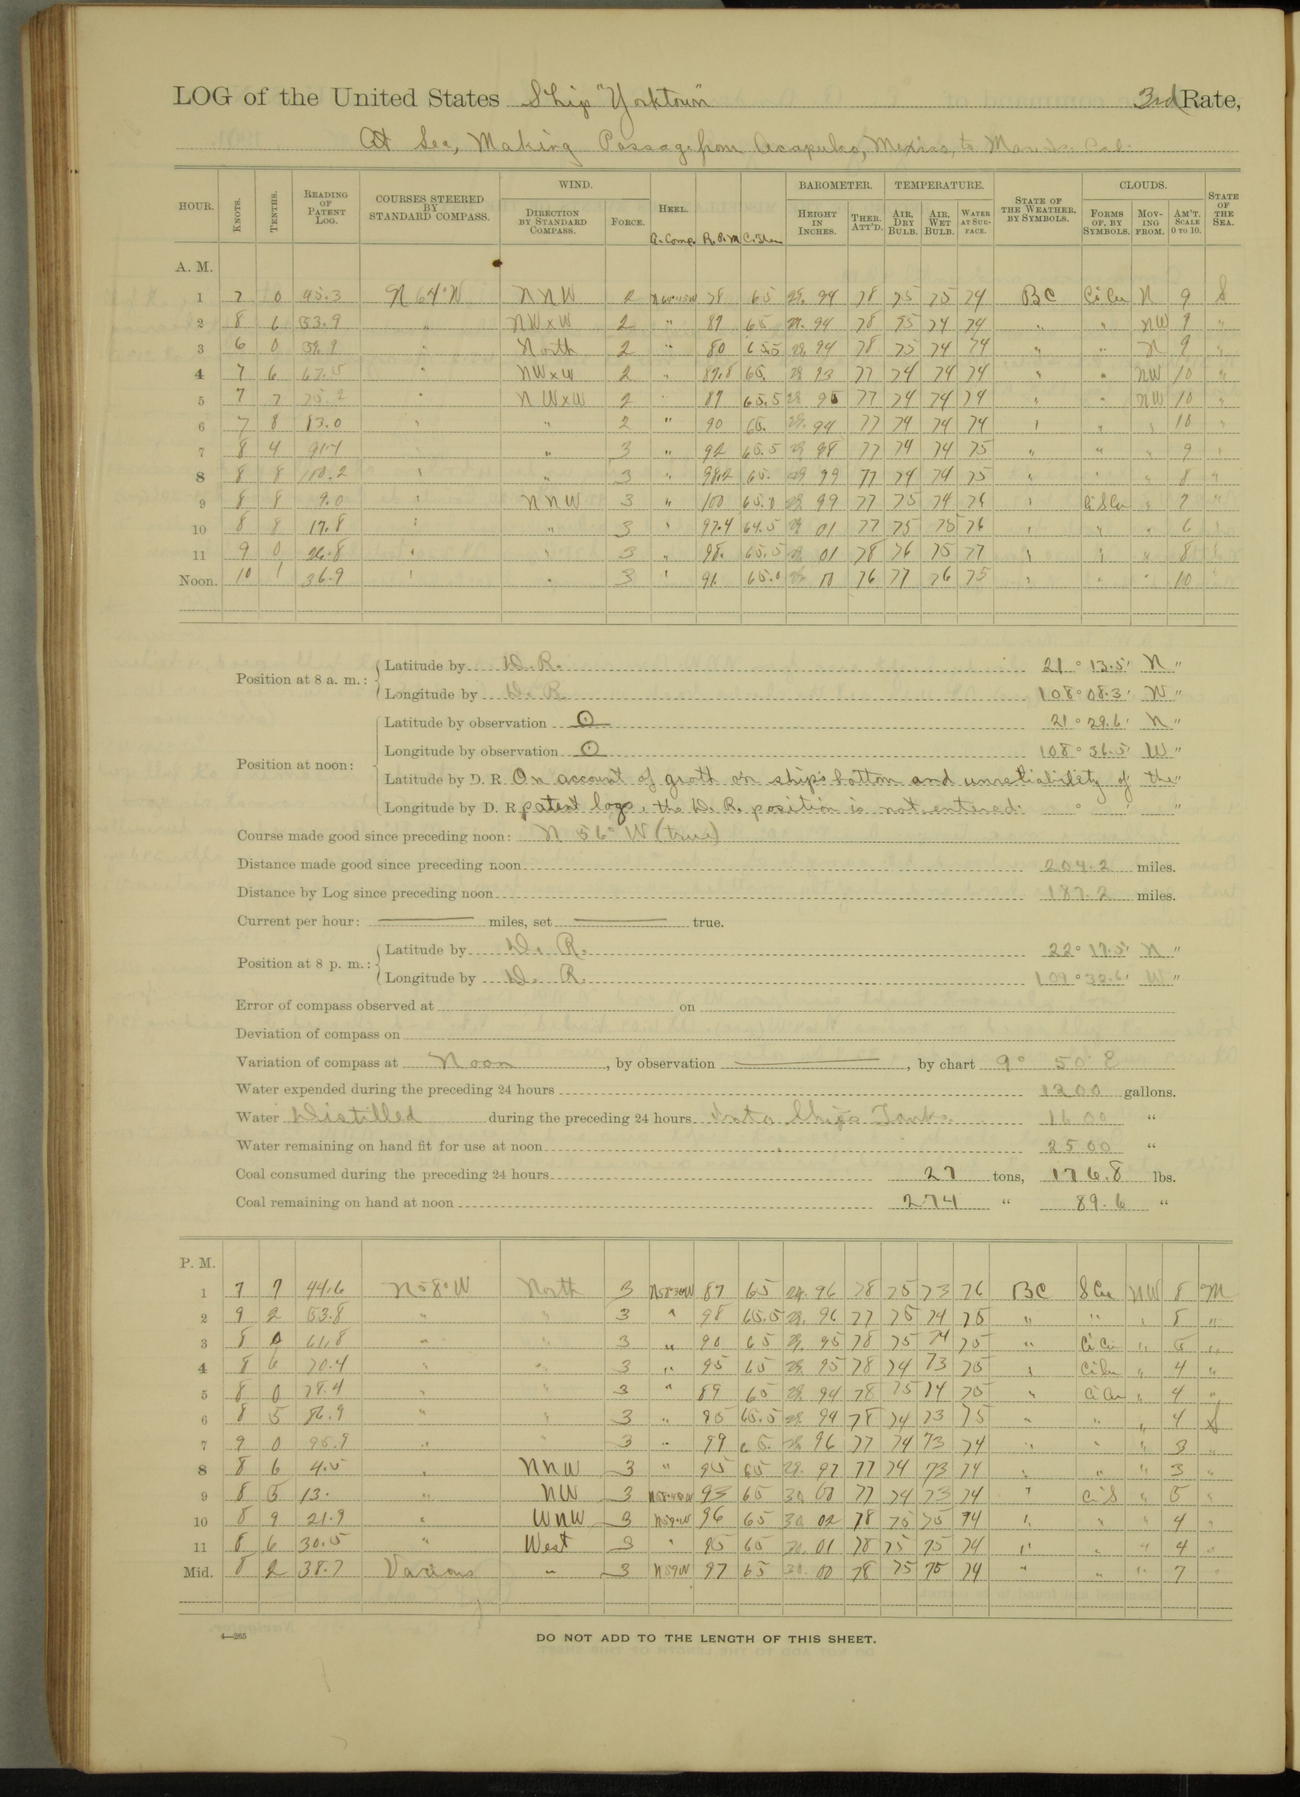 LOG of the United States Ship "Yorktown" 3rd Rate,
At Sea, Making Passage from Acapulco, Mexico, to
HOUR. KNOTS. TENTHS. READING OF PATENT LOG. COURSES STEERED BY STANDARD COMPASS. WIND. DIRECTION BY STANDARD COMPASS. FORCE. HEEL. R.P.M BAROMETER. HEIGHT IN INCHES. THER. ATT'D. TEMPERATURE. AIR, DRY BULB. AIR, WET BULB. WATER AT SURFACE. STATE OF THE WEATHER, BY SYMBOLS. CLOUDS. FORMS OF, BY SYMBOLS. MOVING FROM. AM'T. SCALE 0 TO 10. STATE OF THE SEA.
A. M.
1 7 0 95.3 N 64° W NNW 2 78 65 29.94 78 75 75 74 BC Ci Cu N 9 S
2 8 6 53.9 " NW x W 2 " 87 65 29.94 78 75 74 74 " " NW 9 "
3 6 0 59.9 " North 2 " 80 65.5 29.94 78 75 74 74 " " N 9 "
4 7 6 67.5 " NW x W 2 " 87.8 65. 29 93 77 74 74 74 " " NW 10 "
5 7 7 75.2 " NW x W 2 " 87 65.5 29 95 77 74 74 74 " " NW 10 "
6 7 8 83.0 " " 2 " 90 65. 29.94 77 74 74 74 " " " 10 "
7 8 4 91.4 " " 3 " 92 65.5 29 98 77 74 74 75 " " " 9 "
8 8 8 100.2 " " 3 " 98.2 65. 29 99 77 74 74 75 " " " 8 "
9 8 8 9.0 " NNW 3 " 100 65.0 29 99 77 75 74 76 " Ci S Cu " 7 "
10 8 8 17.8 " " 3 " 97.4 64.5 01 77 75 75 76 " " " 6 "
11 9 0 26.8 " " 3 " 98. 65.5 01 78 76 75 77 " " " 8 "
Noon. 10 1 36.9 " " 3 " 91. 65.0 76 77 76 75 " " " 10 "
Position at 8 a. m.: Latitude by D. R. 21 ° 13.5' N "
Longitude by D. R. 108 ° 08.3' W "
Position at noon: Latitude by observation ☉ 21 ° 29.6' N "
Longitude by observation ☉ 108 ° 36.5' W "
Latitude by D. R. On account of groth on ship's bottom and unreliability of the "
Longitude by D. R. patent logs, the D. R. position is not entered. ° ' "
Course made good since preceding noon: N 56° W (true)
Distance made good since preceding noon 204.2 miles.
Distance by Log since preceding noon 187.2 miles.
Current per hour: miles, set true.
Position at 8 p. m.: Latitude by D. R. 22 ° 17.5' N "
Longitude by D. R. 109 ° 32.6' W "
Error of compass observed at on
Deviation of compass on
Variation of compass at Noon, by observation , by chart 9° 50' E
Water expended during the preceding 24 hours 1200 gallons.
Water Distilled during the preceding 24 hours Into Ship's Tanks. 1600 "
Water remaining on hand fit for use at noon 2500 "
Coal consumed during the preceding 24 hours 27 tons, 1768 lbs.
Coal remaining on hand at noon 274 " 896 "
P. M.
1 7 7 44.6 N 58° W North 3 87 65 29.96 78 75 73 76 BC S Cu NW 8 M
2 9 2 53.8 " " 3 " 98 65.5 29.96 77 75 74 75 " " " 8 "
3 8 0 61.8 " " 3 " 90 65 29.95 78 75 74 75 " Ci Cu " 5 "
4 8 6 70.4 " " 3 " 95 65 29.95 78 74 73 75 " Ci Cu " 4 "
5 8 0 78.4 " " 3 " 89 65 29.94 78 75 74 75 " Ci Cu " 4 "
6 8 5 86.9 " " 3 " 95 65.5 29.94 78 74 73 75 " " " 4 S
7 9 0 95.9 " " 3 " 99 65. 29.96 77 74 73 74 " " " 3 "
8 8 6 4.5 " NNW 3 " 95 65 29.97 77 74 73 74 " " " 3 "
9 8 5 13. " NW 3 93 65 30.00 77 74 73 74 " Ci S " 5 "
10 8 9 21.9 " WNW 3 N59W 96 65 30 02 78 75 75 74 " " " 4 "
11 8 6 30.5 " West 3 " 95 65 30.01 78 75 75 74 " " " 4 "
Mid. 8 2 38.7 Various " 3 N59W 97 65 30.00 78 75 75 74 " " " 7 "
4—265
DO NOT ADD TO THE LENGTH OF THIS SHEET.